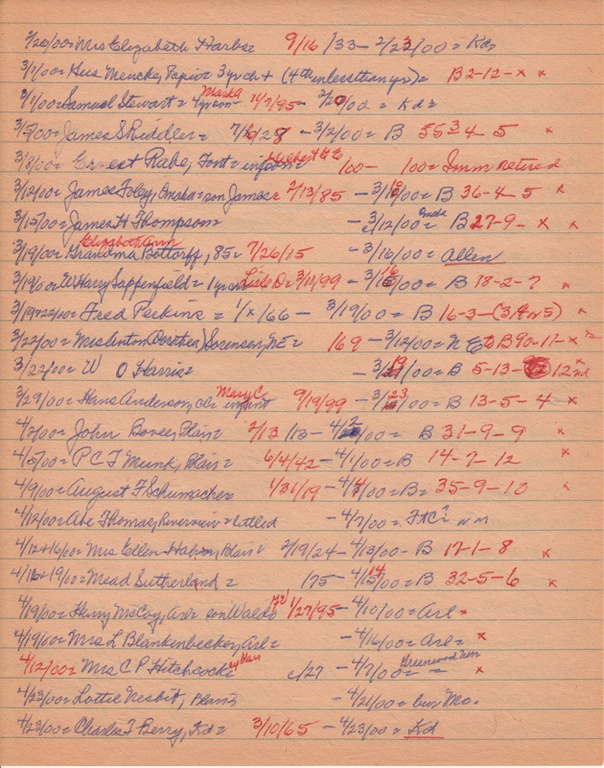 2/20/00= Mrs Elizabeth Harber 9/16/33 - 2/23/00 = Kd=
3/1/00= Hus Mencke, Papio= 3yr ch + (4th unless than yr)= B 2-12-x x
Mark A
3/1/00= Samuel Stewart = 4yr son 11/7/95 - 2/20/00 = Kd=
3/5/00= James S Riddler = 7/6/28 - 3/2/00= B 55 3 4 5 x
3/8/00= Ernest Rabe, Font= infant= 100- 100= Imm retired
3/12/00= James Foley, Omaha= son James= 2/13/85 - 3/10/00= B 36-4-5 x
3/15/00= James H Thompson - 3/12/00= B 27-9-x x
Elizabeth Ann
3/19/00= Grandma Bottorff, 85= 7/26/15 - 3/16/00= Allen
3/19/00= W Harry Sappenfield = 1yr Lisle D= 3/11/99 - 3/16/00= B 18-2-7 x
3/19+22/00= Fred Perkins = 1/x/66 - 3/19/00= B 16-3-(3,4 or 5) x
3/22/00= Mrs Dorothea Sorensen, NE= 169 - 3/12/00= N E to B 90-11-x
3/22/00= W O Harris= - 3/19/00= B 5-13- 12 nd x
Mary C
3/29/00= Hans Anderson, infant 9/19/99 - 3/23/00= B 13-5-4 x
4/2/00= John Bovee, Blair= 2/13/13 - 4/2/00= B 31-9-9 x
4/5/00= P C T Munk, Blair= 6/4/42 - 4/1/00= B 14-7-12 x
4/9/00= August F Schumacher= 1/31/19 - 4/4/00= B= 35-9-10 x
4/12/00= Abe Thomas, Riverview= - 4/7/00= Ft C? NM
4/12+16/00= Mrs Ellen Halson, Blair= 2/19/24 - 4/13/00- B 17-1-8 x
4/16+19/00= Mead Sutherland= 175 - 4/14/00= B 32-5-6 x
4/19/00= Henry McCoy, Arl= son Waldo 1/27/95 - 4/10/00= Arl=
4/19/00= Mrs L Blankenbecker, Arl= - 4/16/00= Arl= x
4/12/00= Mrs C P Hitchcock= ex Blair c/27 - 4/7/00= Greenwood x
4/23/00= Lottie Nesbit, Blair= - 4/21/00= bur Mo.
4/23/00= Charles T Berry, Kd= 3/10/65 - 4/23/00= Kd